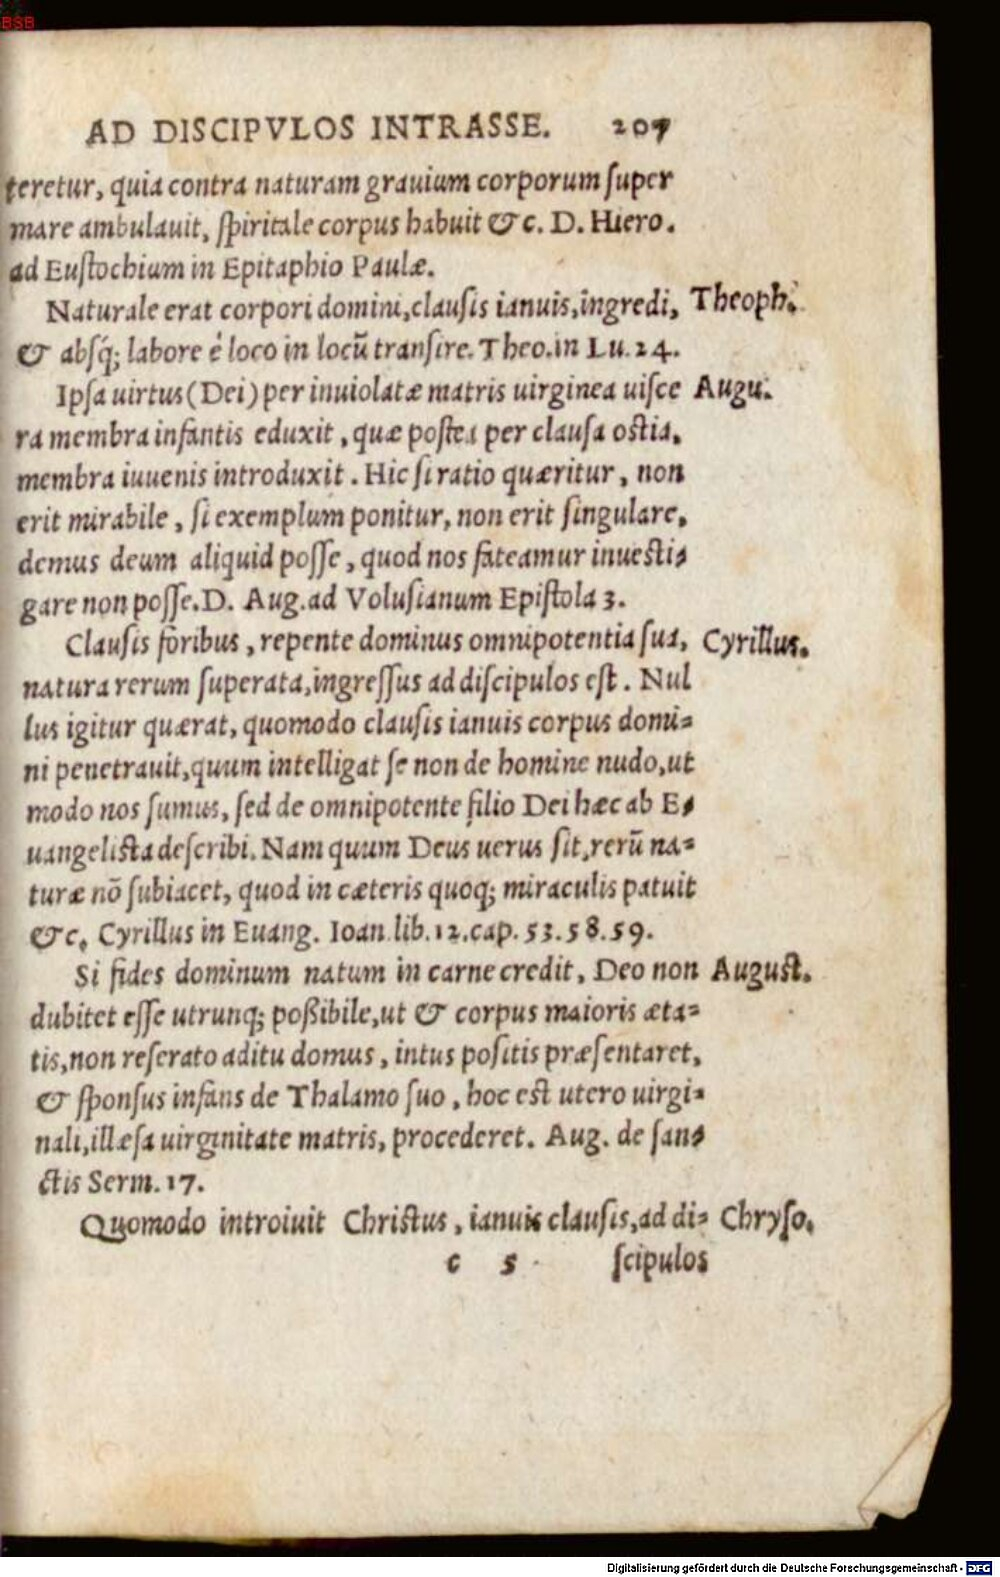 BSB
AD DISCIPVLOS INTRASSE. 207
teretur, quia contra naturam grauium corporum super
mare ambulauit, spiritale corpus habuit & c. D. Hiero.
ad Eustochium in Epitaphio Paulæ.
Naturale erat corpori domini, clausis ianuis, ingredi, Theoph.
& absq́; labore è loco in locũ transire. Theo. in Lu. 24.
Ipsa uirtus (Dei) per inuiolatæ matris uirginea uisce Augu.
ra membra infantis eduxit, quæ postea per clausa ostia,
membra iuuenis introduxit. Hic si ratio quæritur, non
erit mirabile, si exemplum ponitur, non erit singulare,
demus deum aliquid posse, quod nos fateamur inuesti-
gare non posse. D. Aug. ad Volusianum Epistola 3.
Clausis foribus, repente dominus omnipotentia sua, Cyrillus.
natura rerum superata, ingressus ad discipulos est. Nul
lus igitur quærat, quomodo clausis ianuis corpus domi-
ni penetrauit, quum intelligat se non de homine nudo, ut
modo nos sumus, sed de omnipotente filio Dei hæc ab E-
uangelista describi. Nam quum Deus uerus sit, rerũ na-
turæ nõ subiacet, quod in cæteris quoq; miraculis patuit
& c. Cyrillus in Euang. Ioan. lib. 12. cap. 53. 58. 59.
Si fides dominum natum in carne credit, Deo non August.
dubitet esse utrunq; poßibile, ut & corpus maioris æta-
tis, non reserato aditu domus, intus positis præsentaret,
& sponsus infans de Thalamo suo, hoc est utero uirgi-
nali, illæsa uirginitate matris, procederet. Aug. de san-
ctis Serm. 17.
Quomodo introiuit Christus, ianuis clausis, ad di- Chryso.
c 5 scipulos
Digitalisierung gefördert durch die Deutsche Forschungsgemeinschaft - DFG